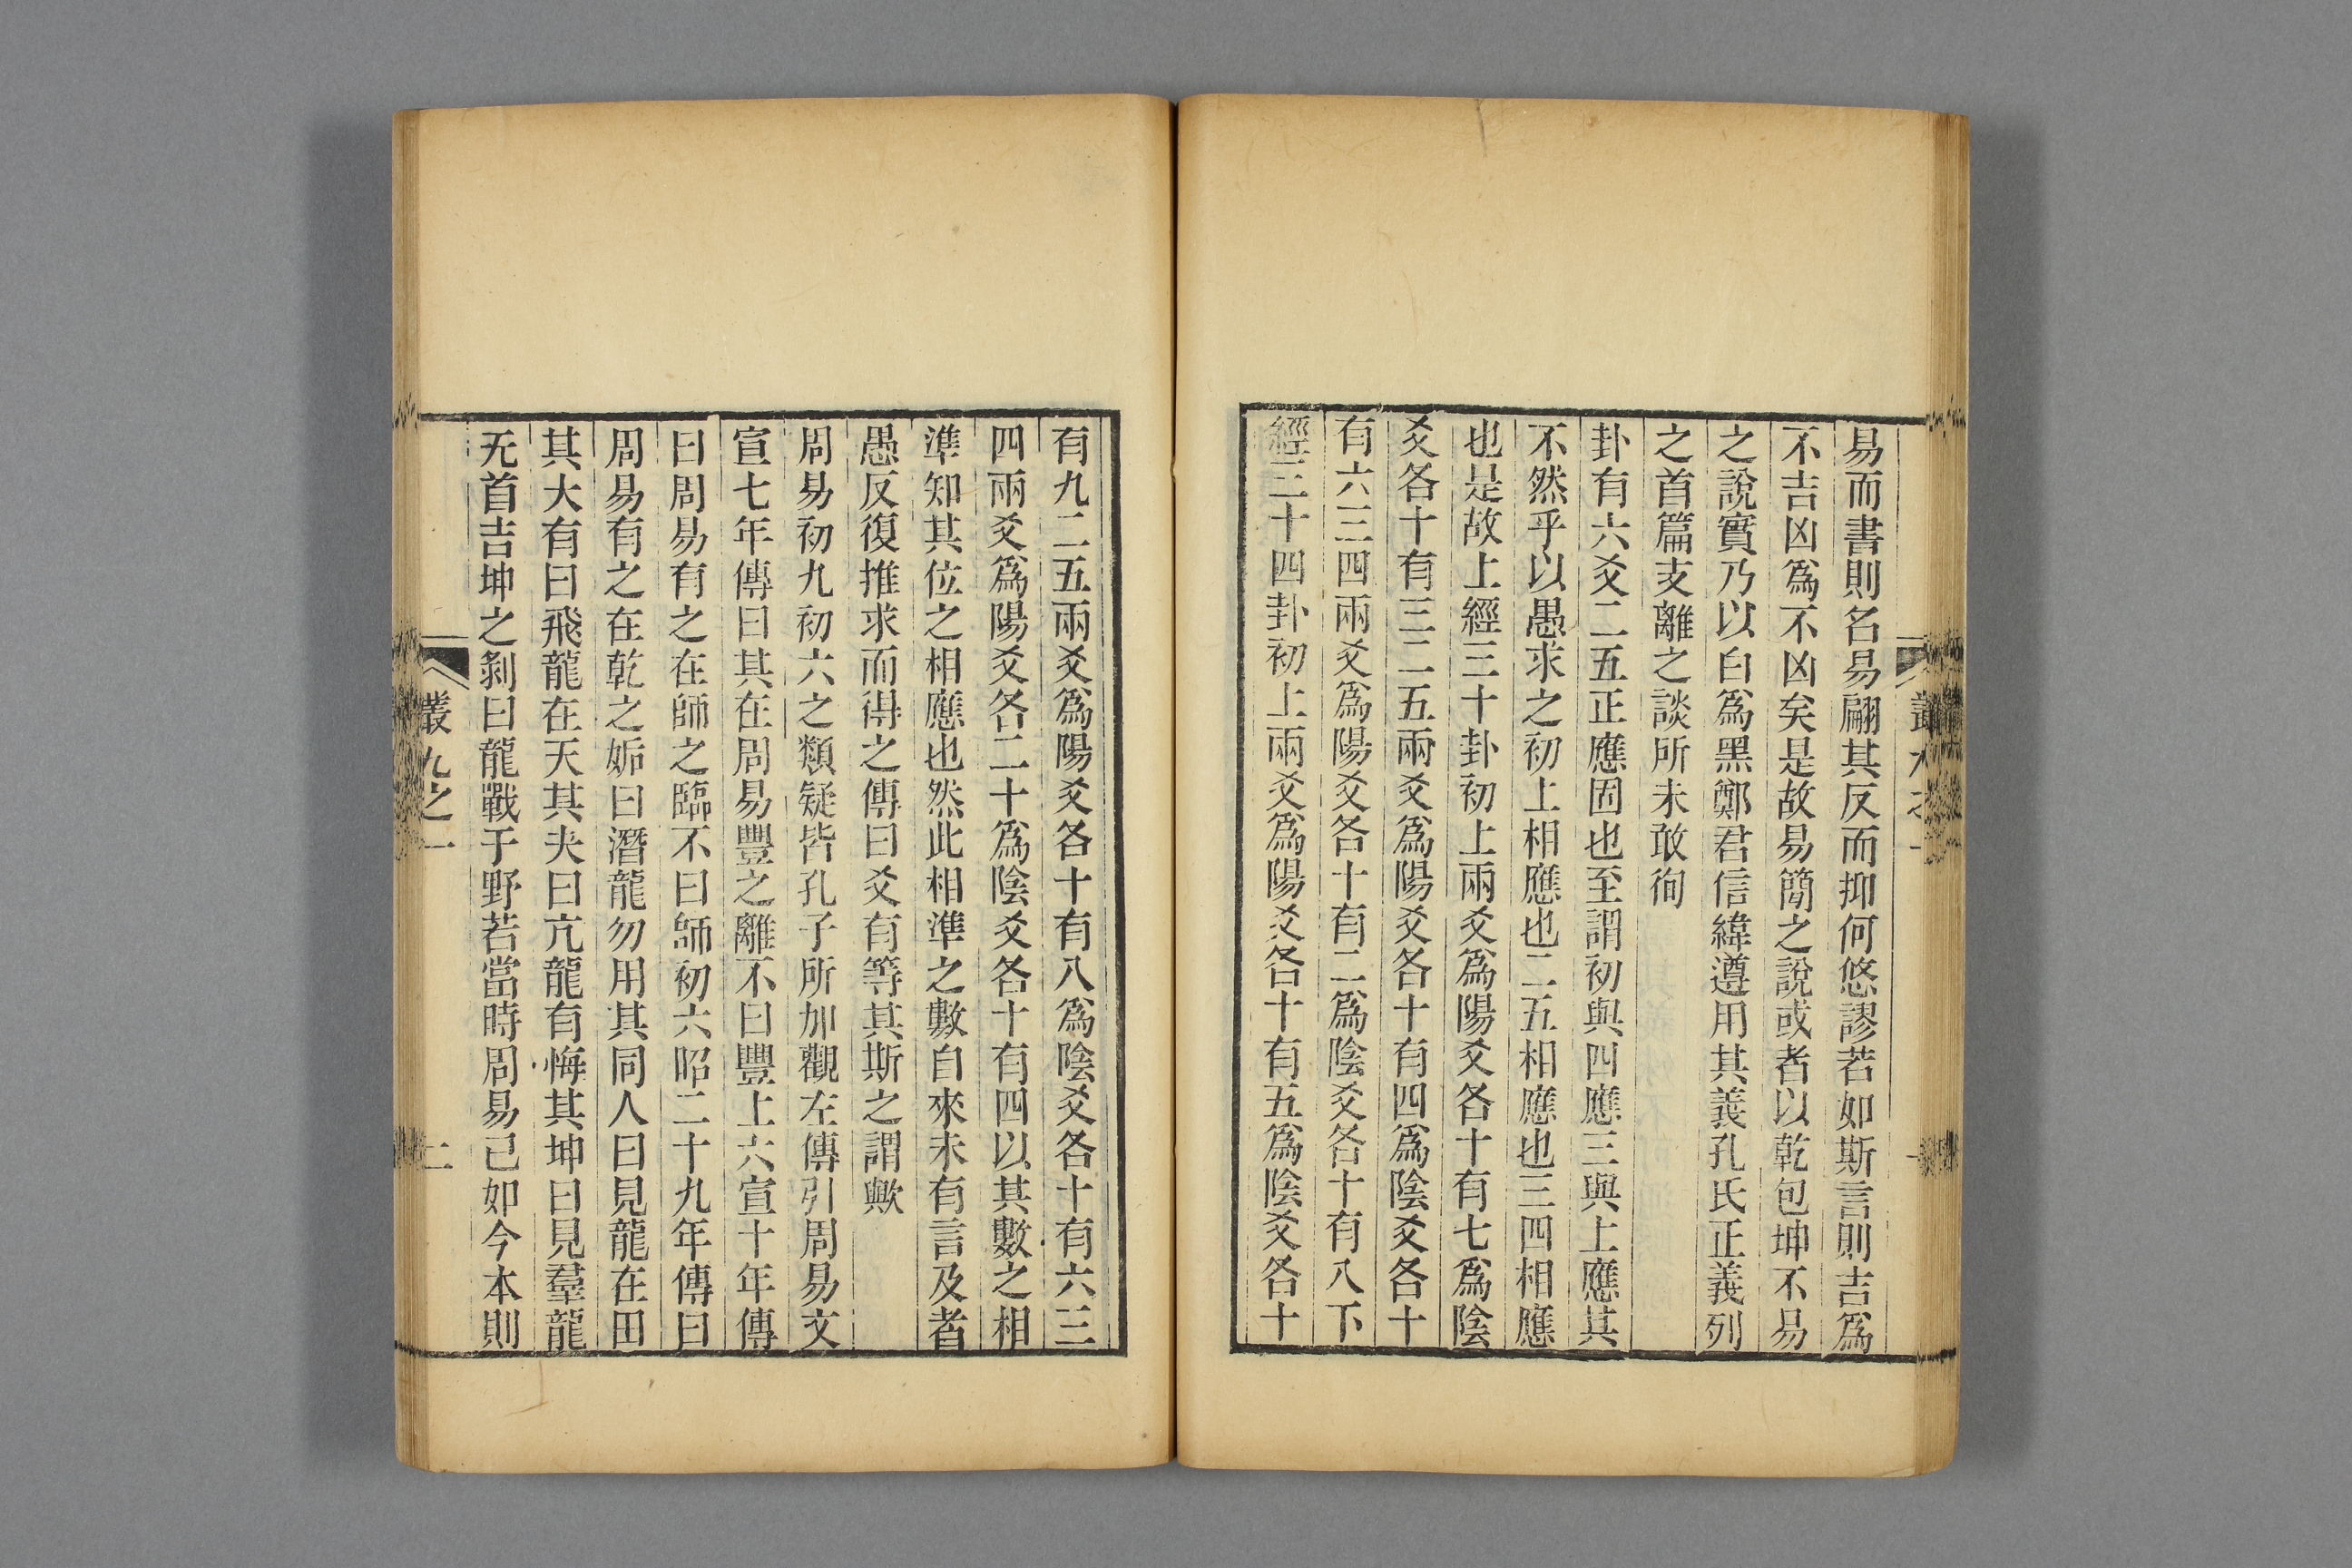 易而書則名易翩其反而抑何悠謬若如斯言則吉爲
不吉凶爲不凶矣是故易簡之說或者以乾包坤不易
之說實乃以白爲黑鄭君信緯遵用其義孔氏正義列
之首篇支離之談所未敢徇
卦有六爻二五正應固也至謂初與四應三與上應其
不然乎以愚求之初上相應也二五相應也三四相應
也是故上經三十卦初上兩爻爲陽爻各十有七爲陰
爻各十有三二五兩爻爲陽爻各十有四爲陰爻各十
有六三四兩爻爲陽爻各十有二爲陰爻各十有八下
經三十四卦初上兩爻爲陽爻各十有五爲陰爻各十
有九二五兩爻爲陽爻各十有八爲陰爻各十有六三
四兩爻爲陽爻各二十爲陰爻各十有四以其數之相
準知其位之相應也然此相準之數自來未有言及者
愚反復推求而得之傳曰爻有等其斯之謂歟
周易初九初六之類疑皆孔子所加觀左傳引周易文
宣七年傳曰其在周易豐之離不曰豐上六宣十年傳
曰周易有之在師之臨不曰師初六昭二十九年傳曰
周易有之在乾之姤曰潛龍勿用其同人曰見龍在田
其大有曰飛龍在天其夬曰亢龍有悔其坤曰見羣龍
无首吉坤之剝曰龍戰于野若當時周易已如今本則
叢九之一
二